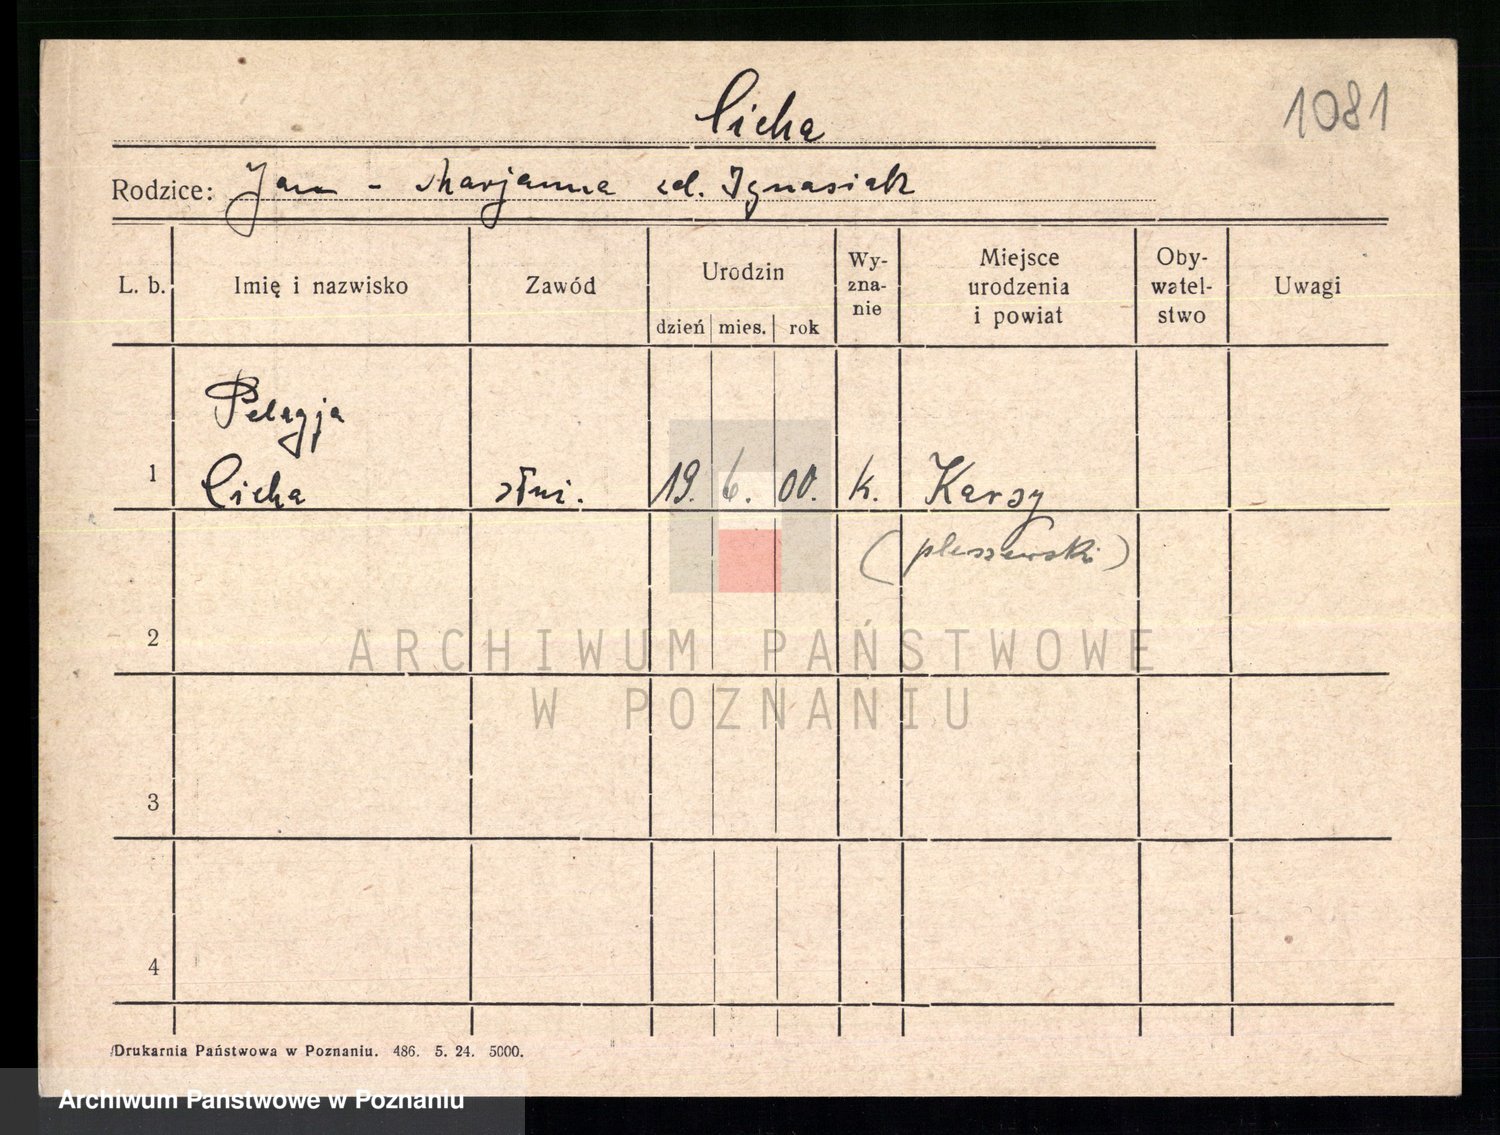 Cicha
1081
Rodzice: Jan - Marjanna zd. Ignasiak
L. b. Imię i nazwisko Zawód Urodzin dzień mies. rok Wy-
zna-
nie Miejsce
urodzenia
i powiat Oby-
watel-
stwo Uwagi
Pelagja
1 Cicha słui. 19. 6. 00. k. Karsy
(pleszewski)
2
ARCHIWUM PAŃSTWOWE
W POZNANIU
3
4
Drukarnia Państwowa w Poznaniu. 486. 5. 24. 5000.
Archiwum Państwowe w Poznaniu